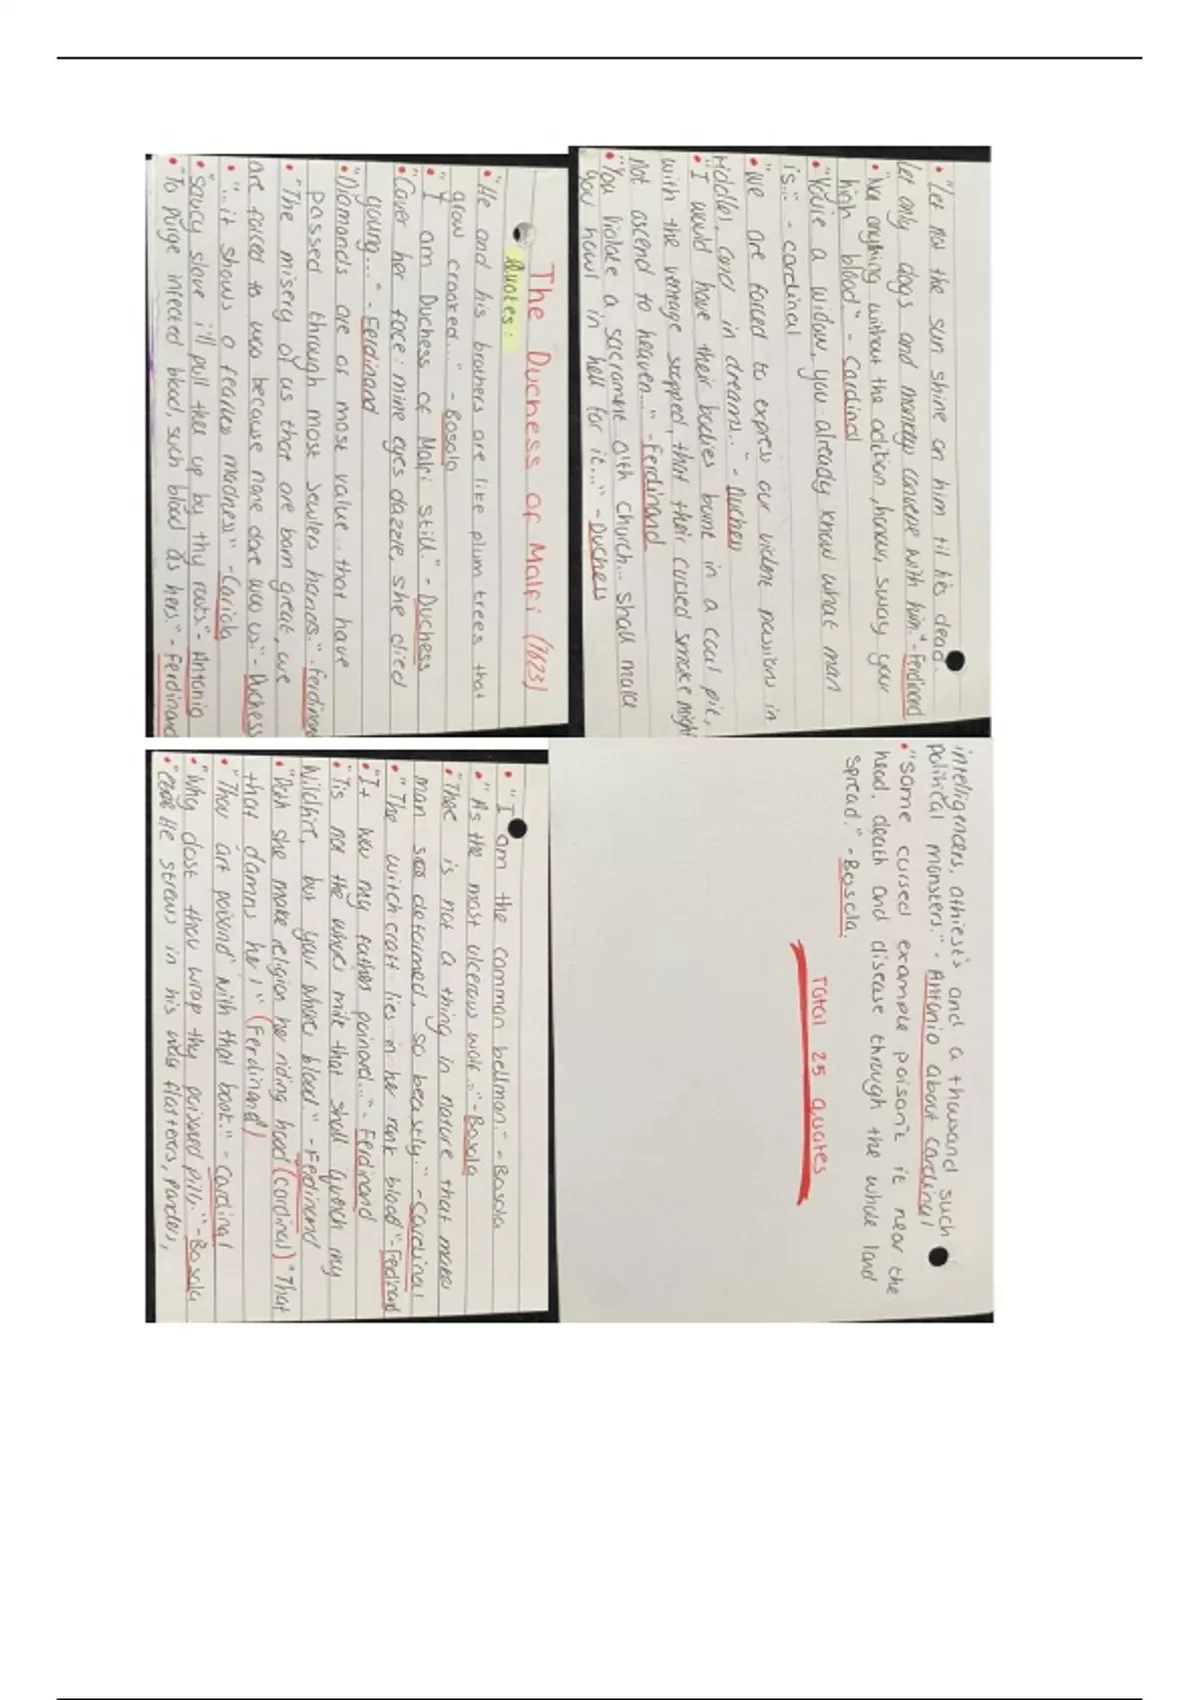 The Duchess of Malfi (1623)
Quotes:
• "He and his brothers are like plum trees that
grow crooked..." - Bosola
• "I am Duchess of Malfi still." - Duchess
• "Cover her face: mine eyes dazzle, she died
young..." - Ferdinand
• "Diamonds are of most value.. that have
passed through most jewlers hands." - Ferdinand
• "The misery of us that are born great, we
are forced to woo because none dare woo us" - Duchess
• "...it shows a fearful madness" - Cariola
• "Saucy slave i'll pull thee up by thy roots." - Antonio
• "To purge infected blood, such blood as hers." - Ferdinand
• "Let not the sun shine on him til he's dead.
Let only dogs and monkeys converse with him." - Ferdinand
• "Nor anything without the adition, honour, sway your
high blood" - Cardinal
• "You're a widow, you already know what man
is..." - Cardinal
• "We are forced to express our violent passions in
riddles, and in dreams.." - Duchess
• "I would have their bodies burnt in a coal pit,
with the ventage stopped, that their cursed smoke might
not ascend to heaven..." - Ferdinand
• "You violate a sacrament o'th church... shall make
you howl in hell for it..." - Duchess
• "I am the common bellman." - Bosola
• "As the most ulcerous wolf..." - Bosola
• "There is not a thing in nature that makes
man deformed, so beastly." - Cardinal
• "The witchcraft lies in her rank blood" - Ferdinand
• "It was my fathers poinard..." - Ferdinand
• "Tis not the whores milk that shall quench my
wildfire, but your whores blood." - Ferdinand
• "Doth she make religion her riding hood (cardinal) "That
that damns her!" (Ferdinand)
• "Thou art poisond with that book." - Cardinal
• "Why dost thou wrap thy poisoned pills." - Bosola
• "He strews in his way flatterers, panders,
intelligencers, athiest's and a thousand such
political monsters." - Antonio about Cardinal
• "Some cursed example poison't it near the
head, death and disease through the whole land
spread." - Bosola.
Total 25 quotes